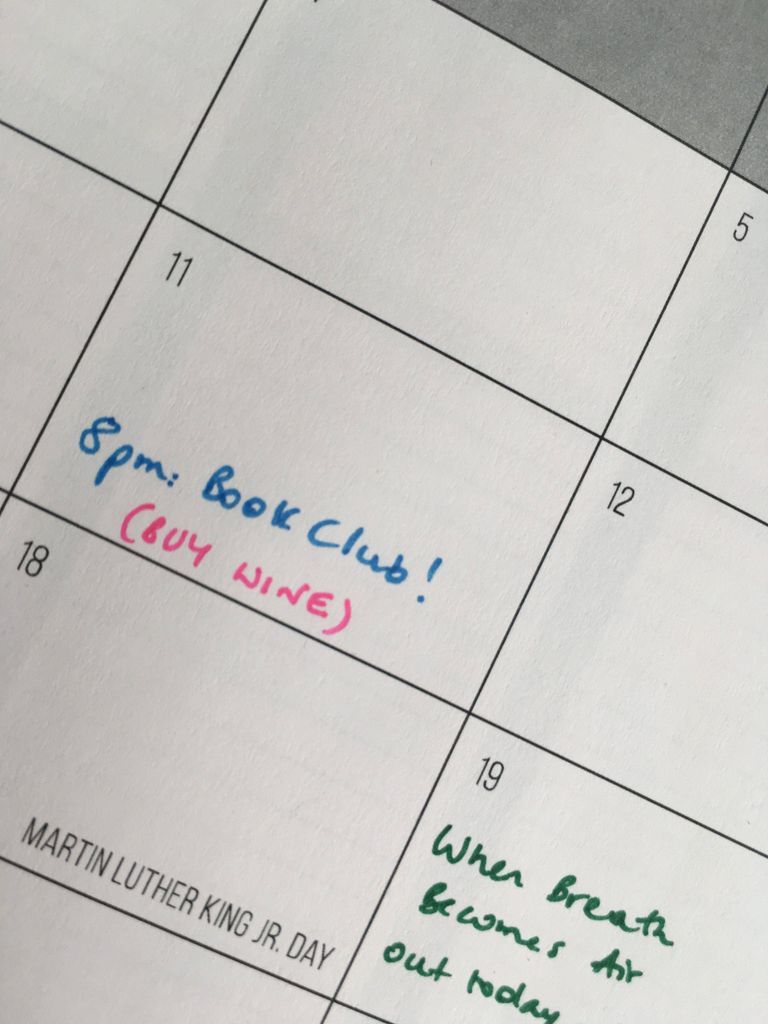 5
11
8pm: Book Club!
(BUY WINE)
12
18
MARTIN LUTHER KING JR. DAY
19
When Breath
Becomes Air
out today